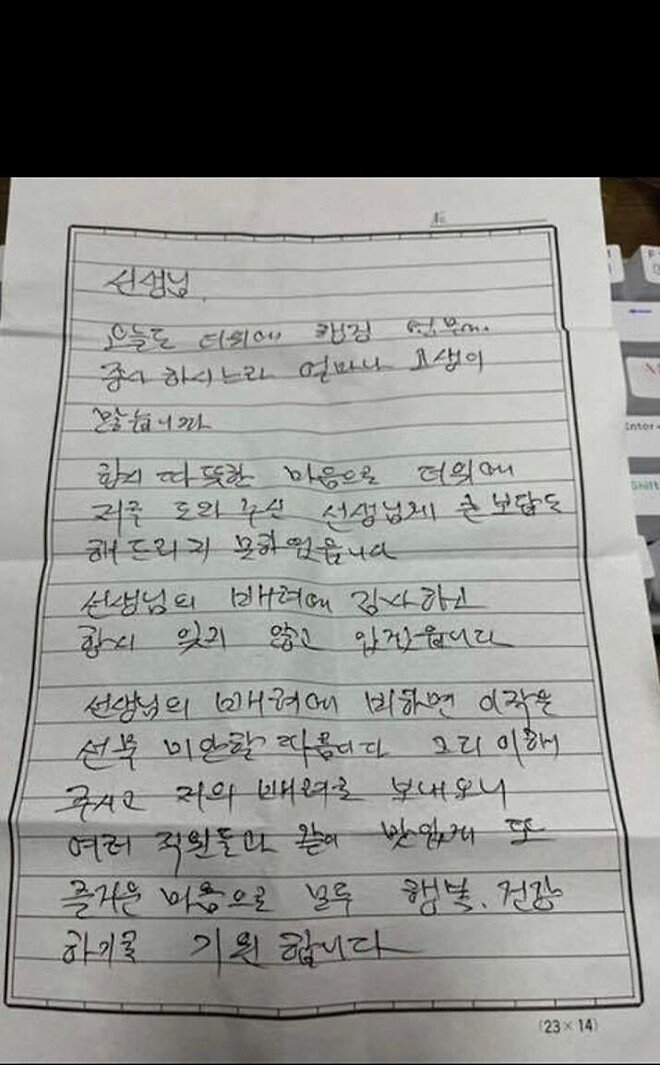 No.
선생님
오늘도 더위에 행정 업무에
종사 하시느라 얼마나 고생이
많습니까
항시 따뜻한 마음으로 더위에
저를 도와 주신 선생님께 큰 보답도
해 드리지 못하였읍니다
선생님의 배려에 감사하고
항시 잊지 않고 있겠읍니다
선생님의 배려에 비하면 이 작은
선물 미안할 따름이다 그리 이해
주시고 저의 배려를 보내오니
여러 직원들과 같이 맛있게 또
즐거운 마음으로 모두 행복. 건강
하기를 기원 합니다
(23 × 14)
Enter
Shift